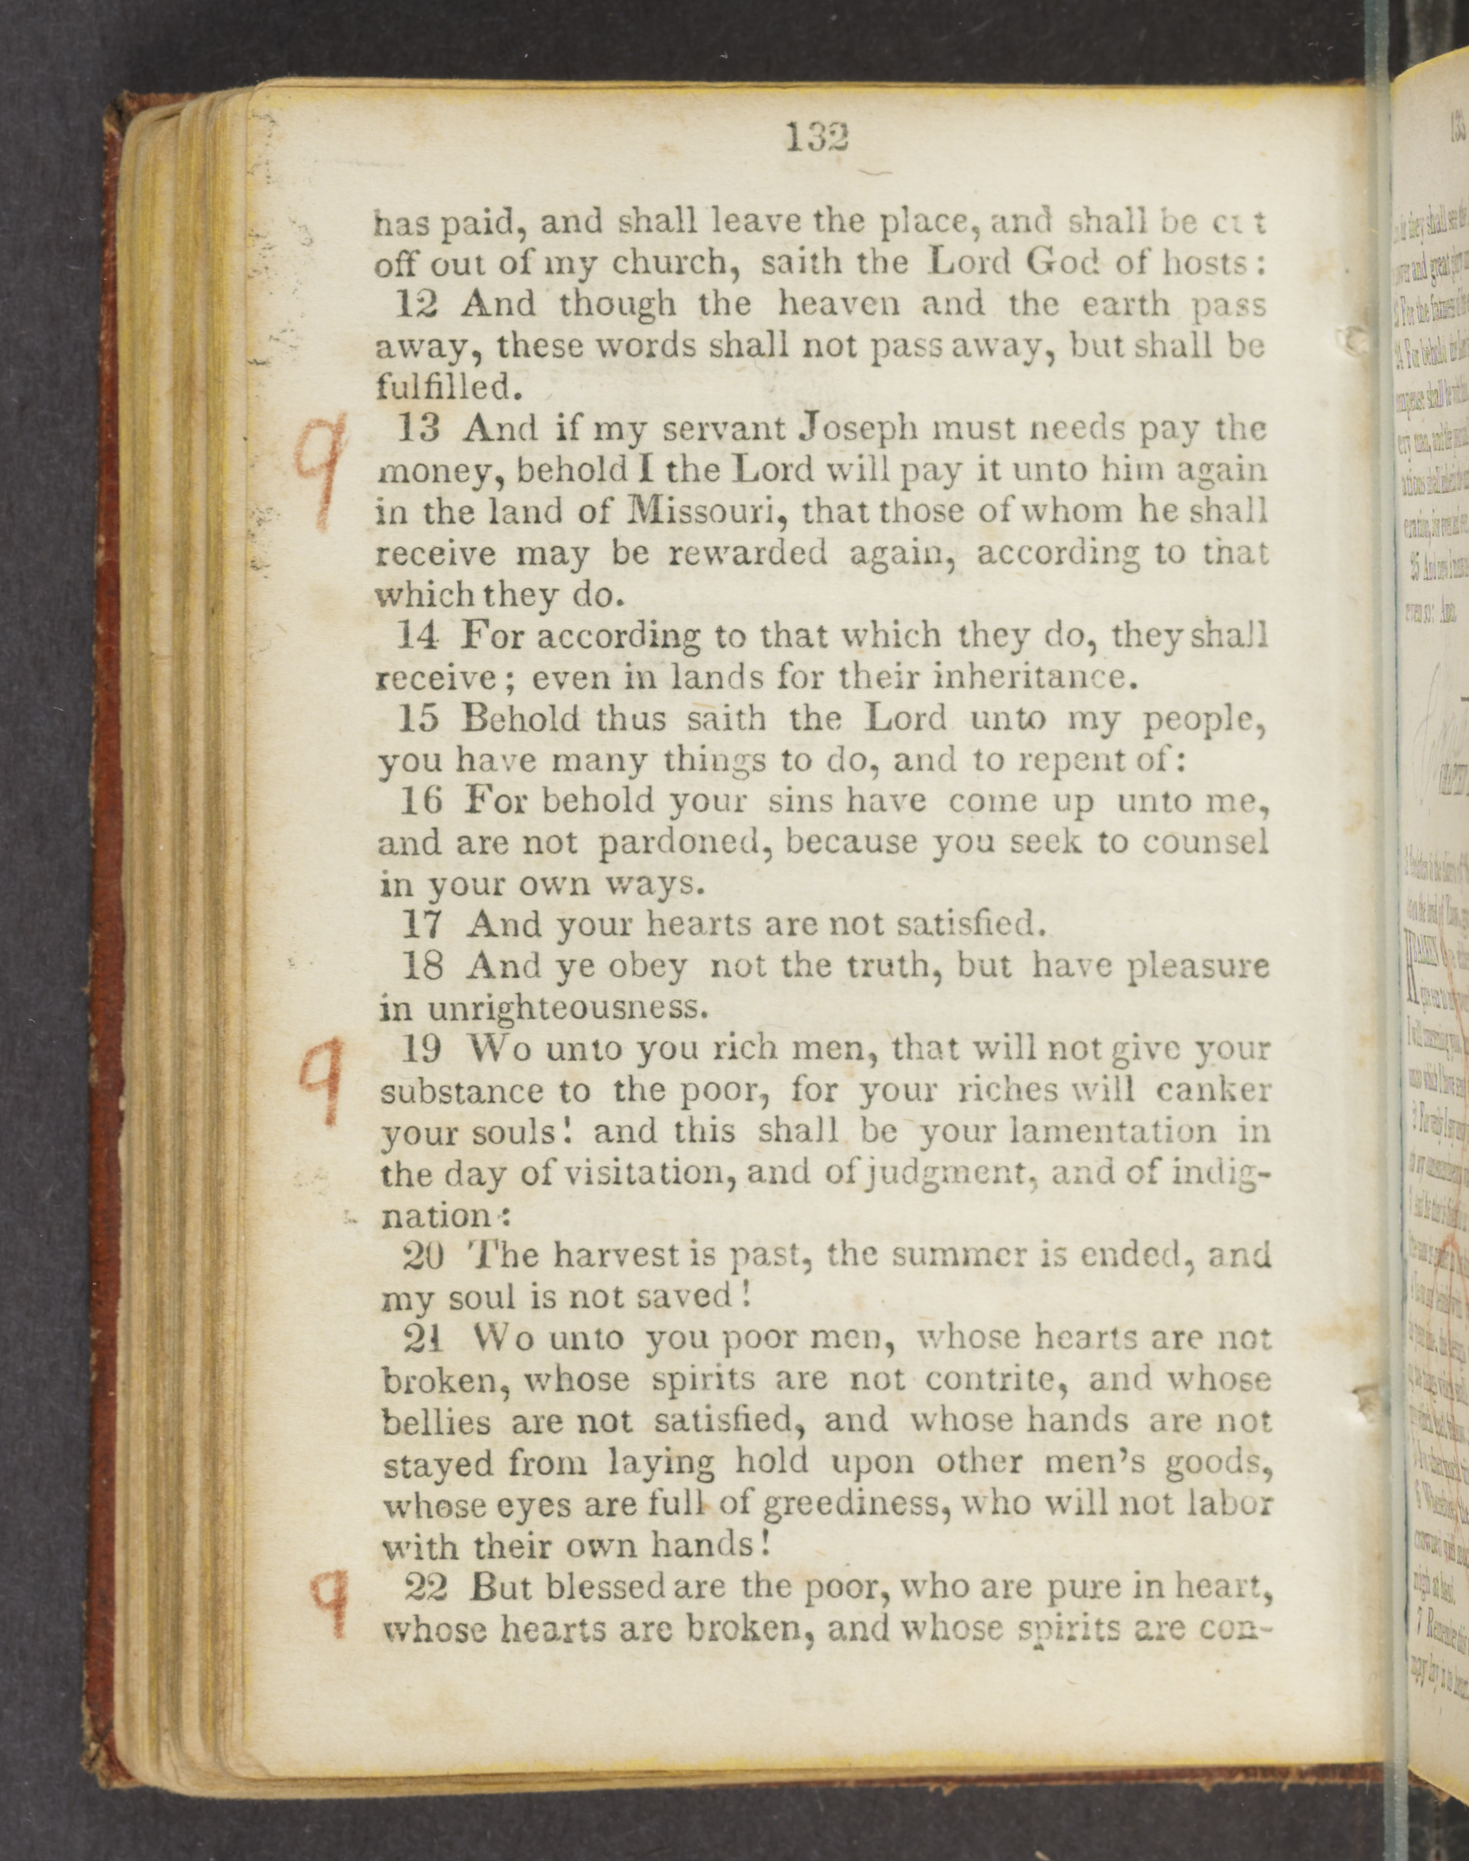 132
has paid, and shall leave the place, and shall be cut
off out of my church, saith the Lord God of hosts:
12 And though the heaven and the earth pass
away, these words shall not pass away, but shall be
fulfilled.
13 And if my servant Joseph must needs pay the
money, behold I the Lord will pay it unto him again
in the land of Missouri, that those of whom he shall
receive may be rewarded again, according to that
which they do.
14 For according to that which they do, they shall
receive; even in lands for their inheritance.
15 Behold thus saith the Lord unto my people,
you have many things to do, and to repent of:
16 For behold your sins have come up unto me,
and are not pardoned, because you seek to counsel
in your own ways.
17 And your hearts are not satisfied.
18 And ye obey not the truth, but have pleasure
in unrighteousness.
19 Wo unto you rich men, that will not give your
substance to the poor, for your riches will canker
your souls! and this shall be your lamentation in
the day of visitation, and of judgment, and of indig-
nation:
20 The harvest is past, the summer is ended, and
my soul is not saved!
21 Wo unto you poor men, whose hearts are not
broken, whose spirits are not contrite, and whose
bellies are not satisfied, and whose hands are not
stayed from laying hold upon other men's goods,
whose eyes are full of greediness, who will not labor
with their own hands!
22 But blessed are the poor, who are pure in heart,
whose hearts are broken, and whose spirits are con-